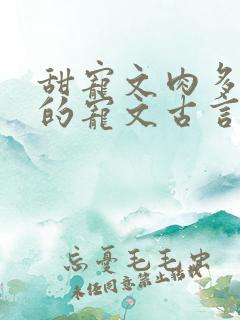 甜寵文肉多
的寵文古言
忘憂毛毛虫
未经同意禁止转载